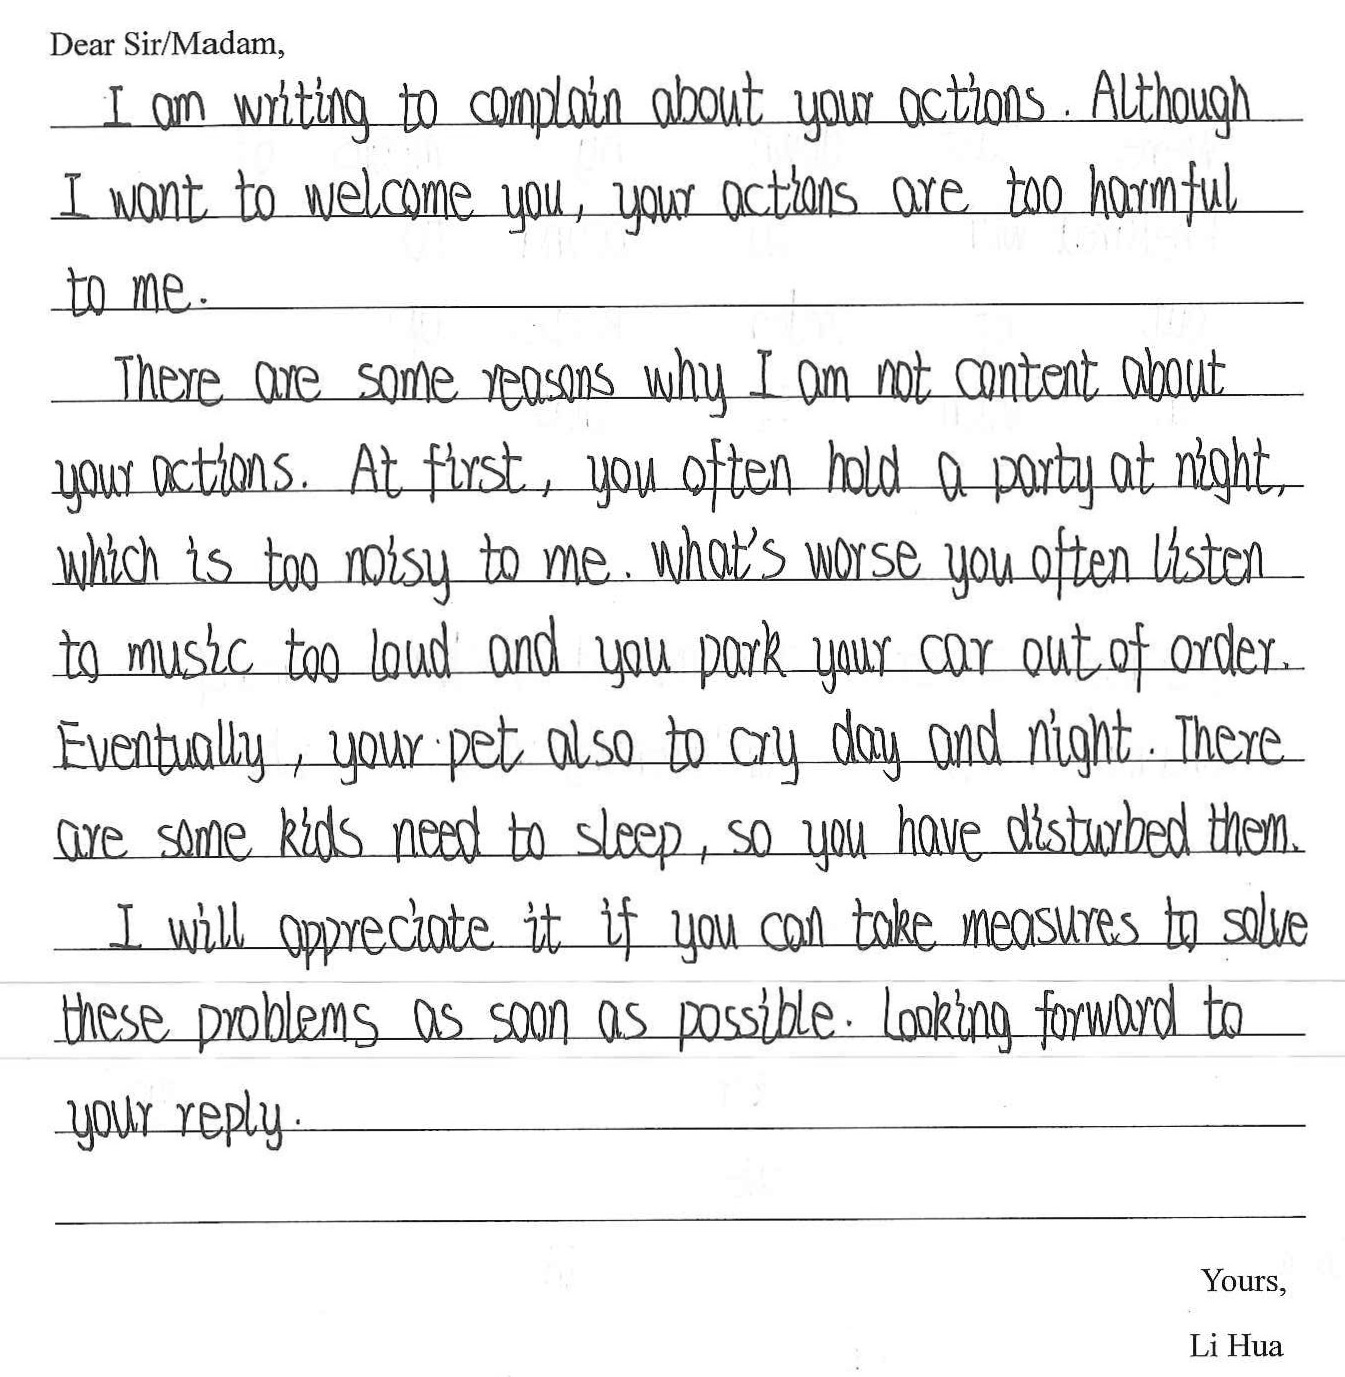 Dear Sir/Madam,
I am writing to complain about your actions. Although
I want to welcome you, your actions are too harmful
to me.
There are some reasons why I am not content about
your actions. At first, you often hold a party at night,
which is too noisy to me. What's worse you often listen
to music too loud and you park your car out of order.
Eventually, your pet also to cry day and night. There
are some kids need to sleep, so you have disturbed them.
I will appreciate it if you can take measures to solve
these problems as soon as possible. Looking forward to
your reply.
Yours,
Li Hua